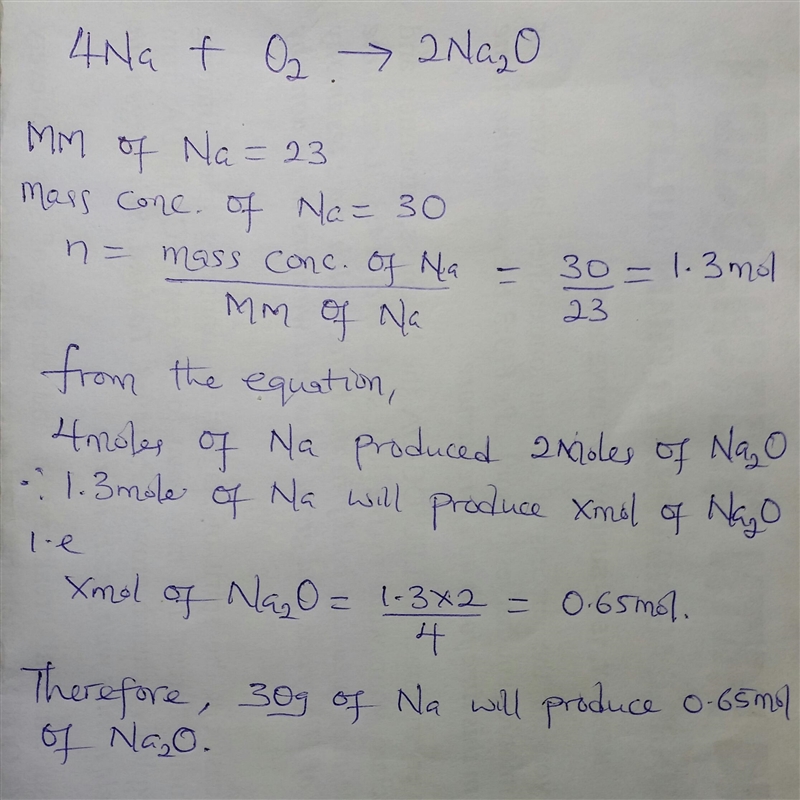 4Na + O₂ → 2Na₂O
MM of Na = 23
Mass conc. of Na = 30
n = mass conc. of Na / MM of Na = 30/23 = 1.3mol
from the equation,
4moles of Na produced 2Moles of Na₂O
∴ 1.3mole of Na will produce Xmol of Na₂O
i.e
Xmol of Na₂O = 1.3×2/4 = 0.65mol.
Therefore, 30g of Na will produce 0.65mol
of Na₂O.